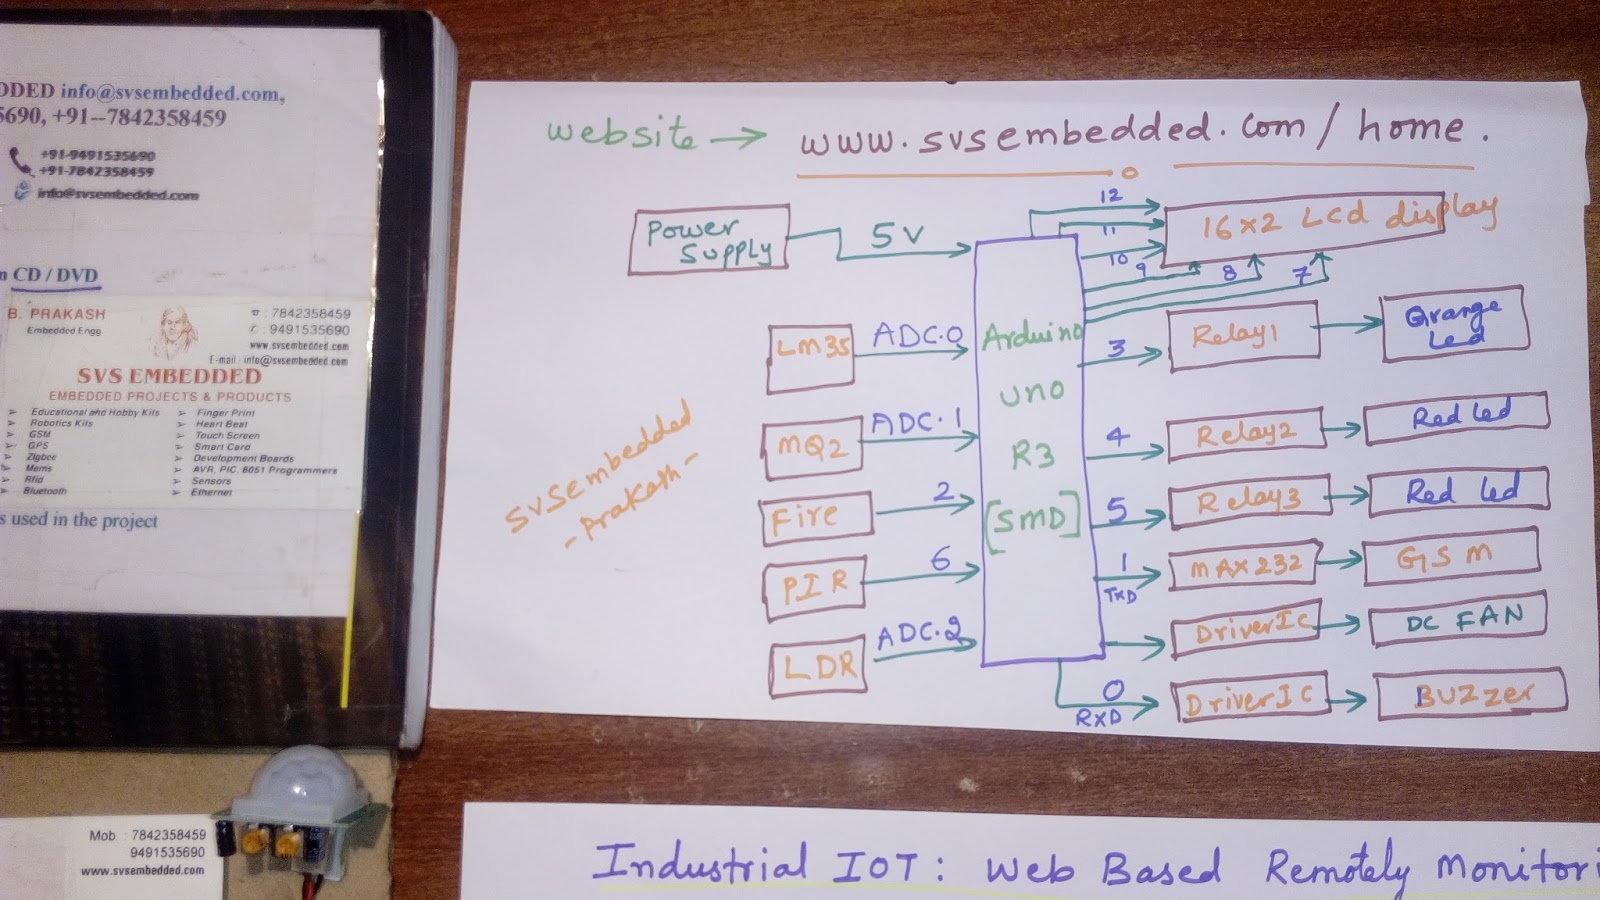 DDED info@svsembedded.com,
5690, +91--7842358459
+91-9491535690
+91-7842358459
info@svsembedded.com
n CD / DVD
B. PRAKASH
Embedded Engg.
: 7842358459
: 9491535690
www.svsembedded.com
E-mail : info@svsembedded.com
SVS EMBEDDED
EMBEDDED PROJECTS & PRODUCTS
Educational and Hobby Kits
Robotics Kits
GSM
GPS
Zigbee
Mems
Rfid
Bluetooth
Finger Print
Heart Beat
Touch Screen
Smart Card
Development Boards
AVR, PIC, 8051 Programmers
Sensors
Ethernet
s used in the project
Mob : 7842358459
9491535690
www.svsembedded.com
website → www.svsembedded.com/home.
Power
Supply
5V
12
11
10
9
8
7
16x2 Lcd display
Lm35
ADC.0
MQ2
ADC.1
Fire
2
PIR
6
LDR
ADC.2
Arduino
UNO
R3
[SMD]
3
Relay1
Orange
Led
4
Relay2
Red led
5
Relay3
Red led
1
TXD
MAX232
GSM
DriverIC
DC FAN
0
RXD
DriverIC
BUZzer
SVSEmbedded
-Prakash-
Industrial IOT: Web Based Remotely Monitori